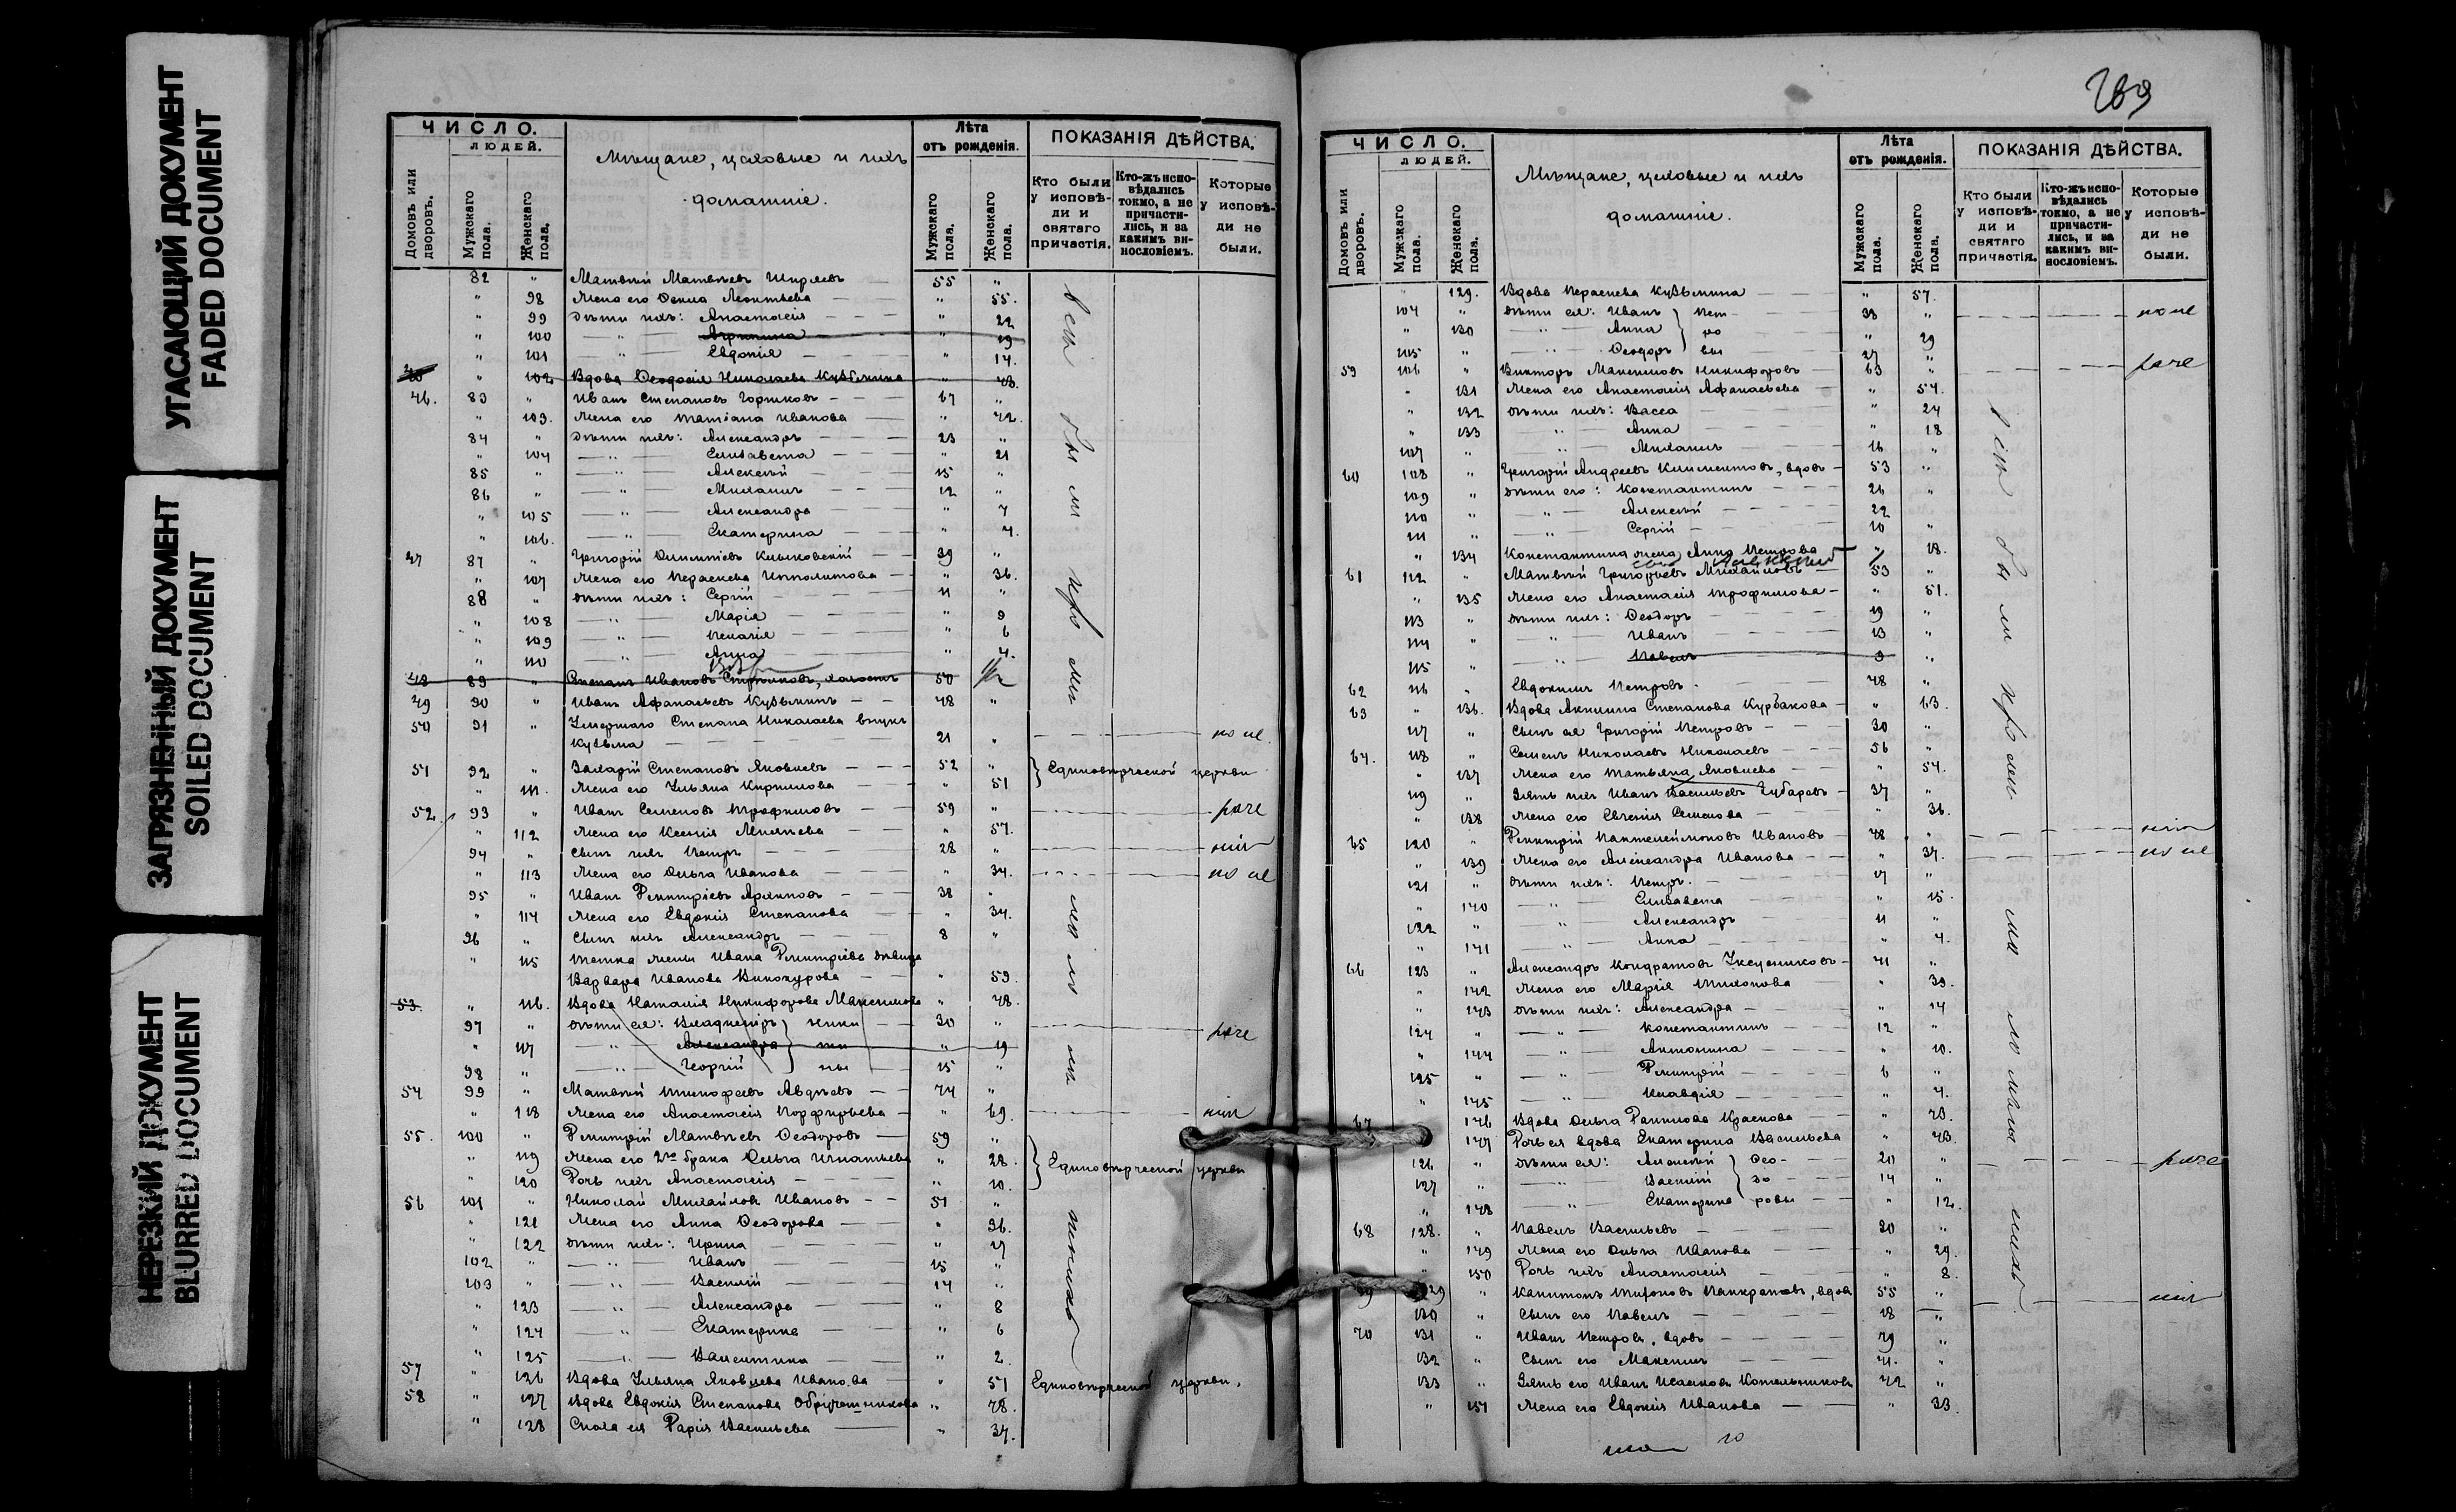 УГАСАЮЩИЙ ДОКУМЕНТ
FADED DOCUMENT
ЗАГРЯЗНЕННЫЙ ДОКУМЕНТ
SOILED DOCUMENT
НЕРЕЗКИЙ ДОКУМЕНТ
BLURRED DOCUMENT
ЧИСЛО.
ЛЮДЕЙ.
Домовъ или дворовъ.
Мужскаго пола.
Женскаго пола.
Мѣщане, цеховые и ихъ
домашніе.
Лѣта
отъ рожденія.
Мужскаго пола.
Женскаго пола.
ПОКАЗАНІЯ ДѢЙСТВА.
Кто были у исповѣди и святаго причастія.
Кто-жъ исповѣдались токмо, а не причастились, и за какимъ винословіемъ.
Которые у исповѣди не были.
82 " Матвѣй Матвѣевъ Ширяевъ 55 "
" 98 Жена его Леонтьева " 55.
" 99 Дѣти ихъ: Анастасія " 22
" 100 — " — " 19
" 101 — " — Евдокія " 14.
" 102 Вдова Ѳеодосія Николаева Кузьмина " 43.
46. 83 " Иванъ Степановъ Горшковъ 67 "
" 103. Жена его Татіана Иванова " 42
84 " Дѣти ихъ: Александръ 23 "
" 104 — " — Елисавета " 21
85 " — " — Алексѣй 15 "
86 " — " — Михаилъ 12 "
" 105 — " — Александра " 7
" 106. — " — Екатерина " 4.
47 87 " Григорій 39 "
" 107 Жена его Параскева Ипполитова " 36.
88 " Дѣти ихъ: Сергій 11 "
" 108 — " — Марія " 9
" 109 — " — " 6
" 110 — " — Анна " 4.
48 89 " Степанъ Ивановъ холостъ 50
49 90 " Иванъ Афанасьевъ Кузьминъ 48 "
50 91 " Умершаго Степана Николаева внукъ
Кузьма 21 "
51 92 " Степановъ Яковлевъ 52 " Единовѣрческой церкви
" 111. Жена его Ульяна Кириллова " 51
52. 93 " Иванъ Семеновъ Трофимовъ 59 "
" 112 Жена его Ксенія " 57.
94 " Сынъ ихъ Петръ 28 "
" 113 Жена его Ольга Иванова " 34.
95 " Иванъ Димитріевъ Архиповъ 38 "
" 114 Жена его Евдокія Степанова " 34.
96 " Сынъ ихъ Александръ 8 "
" 115 Тетка жены Ивана Димитріева дѣвица
Варвара Иванова Винокурова " 59.
53. " 116. Вдова Наталія Никифорова Максимова " 48.
97 " Дѣти ея: Владиміръ 30 "
" 117 — " — Александра " 19
98 " — " — Георгій 15 "
54 99 " Матвѣй Тимофеевъ Авдѣевъ 74 "
" 118 Жена его Анастасія Порфирьева " 69.
55. 100 " Димитрій Матвѣевъ Ѳеодоровъ 59 "
" 119 Жена его 2го брака Ольга Игнатьева " 28. Единовѣрческой церкви
" 120 Дочь ихъ Анастасія " 10.
56 101 " Николай Михайловъ Ивановъ 51 "
" 121 Жена его Анна Ѳеодорова " 36.
" 122 Дѣти ихъ: Ирина " 17
102 " — " — Иванъ 15 "
103 " — " — Василій 14 "
" 123 — " — Александра " 8
" 124 — " — Екатерина " 6
" 125 — " — Валентина " 2.
57 " 126 Вдова Ульяна Яковлева Иванова " 51 Единовѣрческой церкви.
58 " 127 Вдова Евдокія Степанова " 48.
" 128 Сноха ея Дарія Васильева " 34.
769
ЧИСЛО.
ЛЮДЕЙ.
Домовъ или дворовъ.
Мужскаго пола.
Женскаго пола.
Мѣщане, цеховые и ихъ
домашніе.
Лѣта
отъ рожденія.
Мужскаго пола.
Женскаго пола.
ПОКАЗАНІЯ ДѢЙСТВА.
Кто были у исповѣди и святаго причастія.
Кто-жъ исповѣдались токмо, а не причастились, и за какимъ винословіемъ.
Которые у исповѣди не были.
" 129. Вдова Параскева Кузьмина " 57.
104 " Дѣти ея: Иванъ 33 "
" 130 — " — Анна " 29
105 " — " — Ѳеодоръ 27 "
59 106 " Викторъ Максимовъ Никифоровъ 63 "
" 131 Жена его Анастасія Афанасьева " 54.
" 132 Дѣти ихъ: Васса " 24
" 133 — " — Анна " 18
107 " — " — Михаилъ 16 "
60 108 " Григорій Андреевъ Климентовъ, вдовъ 53 "
109 " Дѣти его: Константинъ 26 "
110 " — " — Алексѣй 22
111 " — " — Сергій 10 "
" 134 Константина жена Анна Петрова " 18.
61 112 " Матвѣй Григорьевъ Михайловъ 53 "
" 135 Жена его Анастасія Трофимова " 51.
113 " Дѣти ихъ: Ѳеодоръ 19 "
114 " — " — Иванъ 13 "
115 " — " — Павелъ 9 "
62 116 " Евдокимъ Петровъ 48 "
63 " 136. Вдова Акилина Степанова Курбакова " 63.
117 " Сынъ ея Григорій Петровъ 30 "
64. 118 " Семенъ Николаевъ Николаевъ 56 "
" 137 Жена его Татьяна Яковлева " 54.
119 " Зять ихъ Иванъ Васильевъ Чубаровъ 37 "
" 138 Жена его Евгенія Семенова " 36.
65 120 " Димитрій Пантелеймоновъ Ивановъ 48 "
" 139 Жена его Александра Иванова " 37.
121 " Дѣти ихъ: Петръ 17 "
" 140 — " — Елисавета " 15.
122 " — " — Александръ 11 "
" 141 — " — Анна " 4.
66 123 " Александръ Кондратовъ Уксусниковъ 41 "
" 142 Жена его Марія Тихонова " 39.
" 143 Дѣти ихъ: Александра " 14
124 " — " — Константинъ 12 "
" 144 — " — Антонина " 10.
125 " — " — Димитрій 6 "
" 145 — " — Клавдія " 4.
67 146 Вдова Ольга Данилова Краснова " 73.
147 Дочь ея вдова Екатерина Васильева " 43.
126 " Дѣти ея: Алексѣй 20 "
127 " — " — Василій 14 "
" 148 — " — Екатерина " 12.
68 128. " Павелъ Васильевъ 30 "
" 149 Жена его Ольга Иванова " 29.
" 150 Дочь ихъ Анастасія " 8.
69 129 " Капитонъ Тихоновъ Панкратовъ, вдовъ 55 "
130 " Сынъ его Павелъ 18 "
70 131 " Иванъ Петровъ, вдовъ 79 "
132 " Сынъ его Максимъ 41. "
133 " Зять его Иванъ Исааковъ Котельниковъ 42 "
" 151 Жена его Евдокія Иванова " 33.